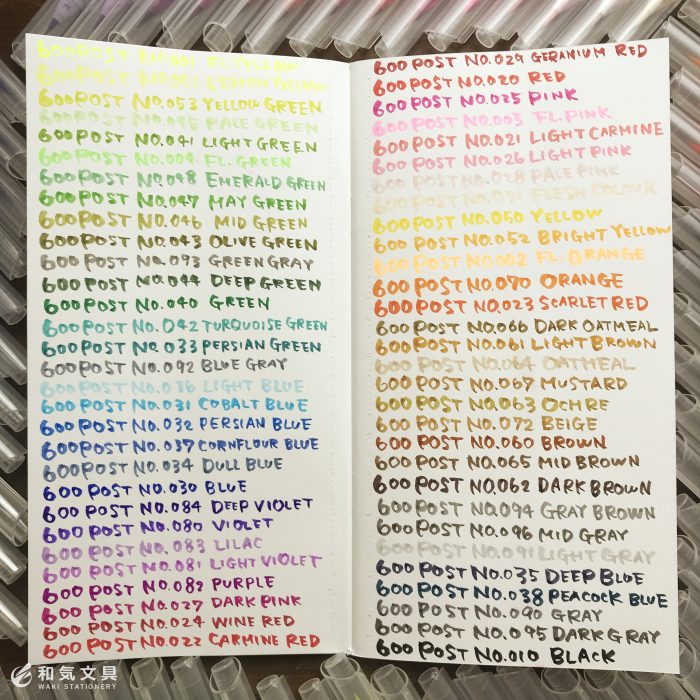 600 POST NO.001 FL.YELLOW
600 POST NO.051 LEMON YELLOW
600 POST NO.053 YELLOW GREEN
600 POST NO.045 PALE GREEN
600 POST NO.041 LIGHT GREEN
600 POST NO.004 FL. GREEN
600 POST NO.048 EMERALD GREEN
600 POST NO.047 MAY GREEN
600 POST NO.046 MID GREEN
600 POST NO.043 OLIVE GREEN
600 POST NO.093 GREEN GRAY
600 POST NO.044 DEEP GREEN
600 POST NO.040 GREEN
600 POST NO.042 TURQUOISE GREEN
600 POST NO.033 PERSIAN GREEN
600 POST NO.092 BLUE GRAY
600 POST NO.036 LIGHT BLUE
600 POST NO.031 COBALT BLUE
600 POST NO.032 PERSIAN BLUE
600 POST NO.037 CORNFLOUR BLUE
600 POST NO.034 DULL BLUE
600 POST NO.030 BLUE
600 POST NO.084 DEEP VIOLET
600 POST NO.080 VIOLET
600 POST NO.083 LILAC
600 POST NO.081 LIGHT VIOLET
600 POST NO.082 PURPLE
600 POST NO.027 DARK PINK
600 POST NO.024 WINE RED
600 POST NO.022 CARMINE RED
600 POST NO.029 GERANIUM RED
600 POST NO.020 RED
600 POST NO.025 PINK
600 POST NO.003 FL.PINK
600 POST NO.021 LIGHT CARMINE
600 POST NO.026 LIGHT PINK
600 POST NO.028 PALE PINK
600 POST NO.091 FLESH COLOUR
600 POST NO.050 YELLOW
600 POST NO.052 BRIGHT YELLOW
600 POST NO.002 FL. ORANGE
600 POST NO.070 ORANGE
600 POST NO.023 SCARLET RED
600 POST NO.066 DARK OATMEAL
600 POST NO.061 LIGHT BROWN
600 POST NO.064 OATMEAL
600 POST NO.067 MUSTARD
600 POST NO.063 OCHRE
600 POST NO.072 BEIGE
600 POST NO.060 BROWN
600 POST NO.065 MID BROWN
600 POST NO.062 DARK BROWN
600 POST NO.094 GRAY BROWN
600 POST NO.096 MID GRAY
600 POST NO.091 LIGHT GRAY
600 POST NO.035 DEEP BLUE
600 POST NO.038 PEACOCK BLUE
600 POST NO.090 GRAY
600 POST NO.095 DARK GRAY
600 POST NO.010 BLACK
和気文具
WAKI STATIONERY